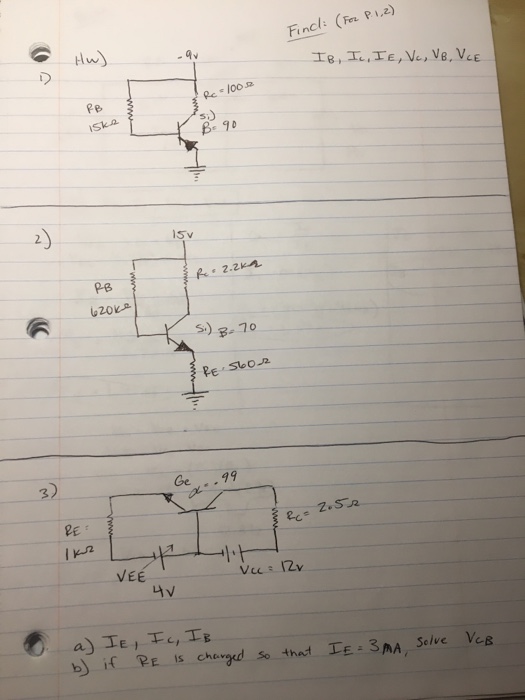 Find: (For P.1,2)
IB, IC, IE, VC, VB, VCE
HW)
1)
-9v
RC = 100Ω
RB
15kΩ
Si)
B= 90
2)
15v
RC = 2.2kΩ
RB
620kΩ
Si) B= 70
RE = 560Ω
3)
Ge
α = .99
RE =
1kΩ
RC = 2.5Ω
VEE
4V
VCC = 12v
a) IE, IC, IB
b) if RE is changed so that IE = 3mA, solve VCB